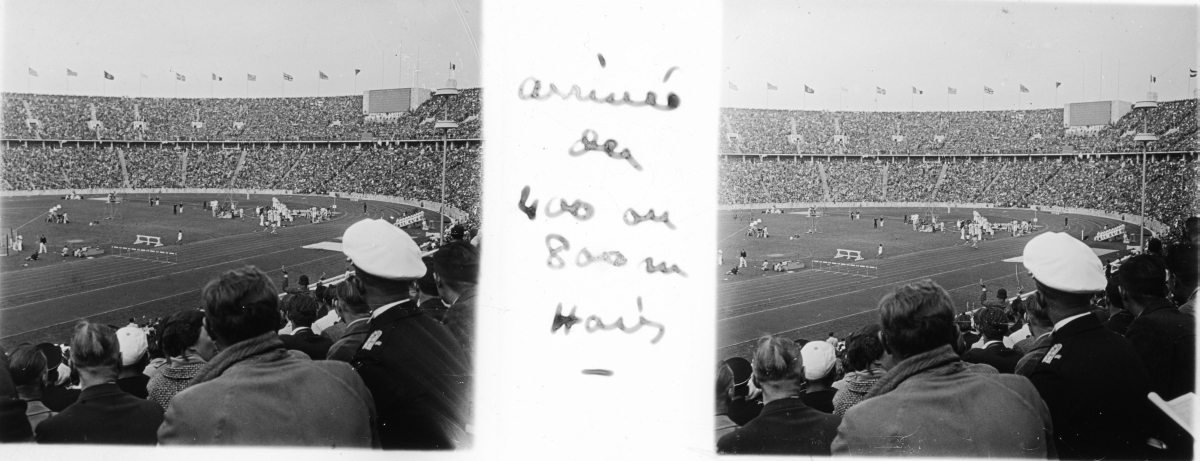 arrivée
des
400 ou
800 m
Haies